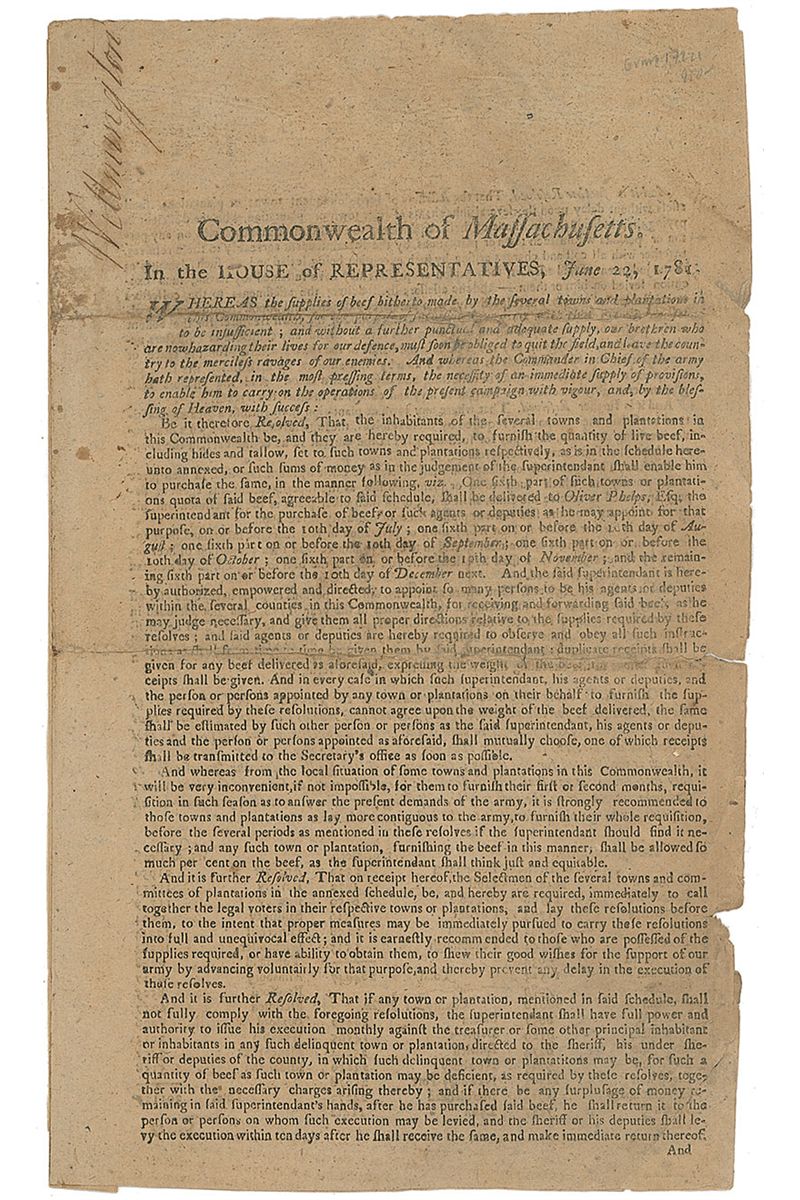 Willmington
Commonwealth of Maſſachuſetts.
In the HOUSE of REPRESENTATIVES, June 22, 1781.
WHEREAS the ſupplies of beef hitherto made by the ſeveral towns and plantations in
this Commonwealth, for the
to be inſufficient ; and without a further punctual and adequate ſupply, our brethren who
are now hazarding their lives for our defence, muſt ſoon be obliged to quit the field, and leave the coun-
try to the mercileſs ravages of our enemies. And whereas the Commander in Chief of the army
hath repreſented, in the moſt preſſing terms, the neceſſity of an immediate ſupply of proviſions,
to enable him to carry on the operations of the preſent campaign with vigour, and, by the bleſ-
ſing of Heaven, with ſucceſs :
Be it therefore Reſolved, That the inhabitants of the ſeveral towns and plantations in
this Commonwealth be, and they are hereby required, to furniſh the quantity of live beef, in-
cluding hides and tallow, ſet to ſuch towns and plantations reſpectively, as is in the ſchedule here-
unto annexed, or ſuch ſums of money as in the judgement of the ſuperintendant ſhall enable him
to purchaſe the ſame, in the manner following, viz. One ſixth part of ſuch towns or plantati-
ons quota of ſaid beef, agreeable to ſaid ſchedule, ſhall be delivered to Oliver Phelps, Eſq; the
ſuperintendant for the purchaſe of beef, or ſuch agents or deputies as he may appoint for that
purpoſe, on or before the 10th day of July ; one ſixth part on or before the 10th day of Au-
guſt ; one ſixth part on or before the 10th day of September ; one ſixth part on or before the
10th day of October ; one ſixth part on or before the 10th day of November ; and the remain-
ing ſixth part on or before the 10th day of December next. And the ſaid ſuperintendant is here-
by authorized, empowered and directed, to appoint ſo many perſons to be his agents or deputies
within the ſeveral counties in this Commonwealth, for receiving and forwarding ſaid beef, as he
may judge neceſſary, and give them all proper directions relative to the ſupplies required by theſe
reſolves ; and ſaid agents or deputies are hereby required to obſerve and obey all ſuch inſtruc-
tions as ſhall from time to time be given them by ſaid ſuperintendant : duplicate receipts ſhall be
given for any beef delivered as aforeſaid, expreſſing the weight of the beef, for
ceipts ſhall be given. And in every caſe in which ſuch ſuperintendant, his agents or deputies, and
the perſon or perſons appointed by any town or plantations on their behalf to furniſh the ſup-
plies required by theſe reſolutions, cannot agree upon the weight of the beef delivered, the ſame
ſhall be eſtimated by ſuch other perſon or perſons as the ſaid ſuperintendant, his agents or depu-
ties and the perſon or perſons appointed as aforeſaid, ſhall mutually chooſe, one of which receipts
ſhall be tranſmitted to the Secretary's office as ſoon as poſſible.
And whereas from the local ſituation of ſome towns and plantations in this Commonwealth, it
will be very inconvenient, if not impoſſible, for them to furniſh their firſt or ſecond months, requi-
ſition in ſuch ſeaſon as to anſwer the preſent demands of the army, it is ſtrongly recommended to
thoſe towns and plantations as lay more contiguous to the army, to furniſh their whole requiſition,
before the ſeveral periods as mentioned in theſe reſolves if the ſuperintendant ſhould find it ne-
ceſſary ; and any ſuch town or plantation, furniſhing the beef in this manner, ſhall be allowed ſo
much per cent on the beef, as the ſuperintendant ſhall think juſt and equitable.
And it is further Reſolved, That on receipt hereof, the Selectmen of the ſeveral towns and com-
mittees of plantations in the annexed ſchedule, be, and hereby are required, immediately to call
together the legal voters in their reſpective towns or plantations, and lay theſe reſolutions before
them, to the intent that proper meaſures may be immediately purſued to carry theſe reſolutions
into full and unequivocal effect ; and it is earneſtly recommended to thoſe who are poſſeſſed of the
ſupplies required, or have ability to obtain them, to ſhew their good wiſhes for the ſupport of our
army by advancing voluntarily for that purpoſe, and thereby prevent any delay in the execution of
thoſe reſolves.
And it is further Reſolved, That if any town or plantation, mentioned in ſaid ſchedule, ſhall
not fully comply with the foregoing reſolutions, the ſuperintendant ſhall have full power and
authority to iſſue his execution monthly againſt the treaſurer or ſome other principal inhabitant
or inhabitants in any ſuch delinquent town or plantation, directed to the ſheriff, his under ſhe-
riff or deputies of the county, in which ſuch delinquent town or plantatitons may be, for ſuch a
quantity of beef as ſuch town or plantation may be deficient, as required by theſe reſolves, toge-
ther with the neceſſary charges ariſing thereby ; and if there be any ſurpluſage of money re-
maining in ſaid ſuperintendant's hands, after he has purchaſed ſaid beef, he ſhall return it to the
perſon or perſons on whom ſuch execution may be levied, and the ſheriff or his deputies ſhall le-
vy the execution within ten days after he ſhall receive the ſame, and make immediate return thereof.
And